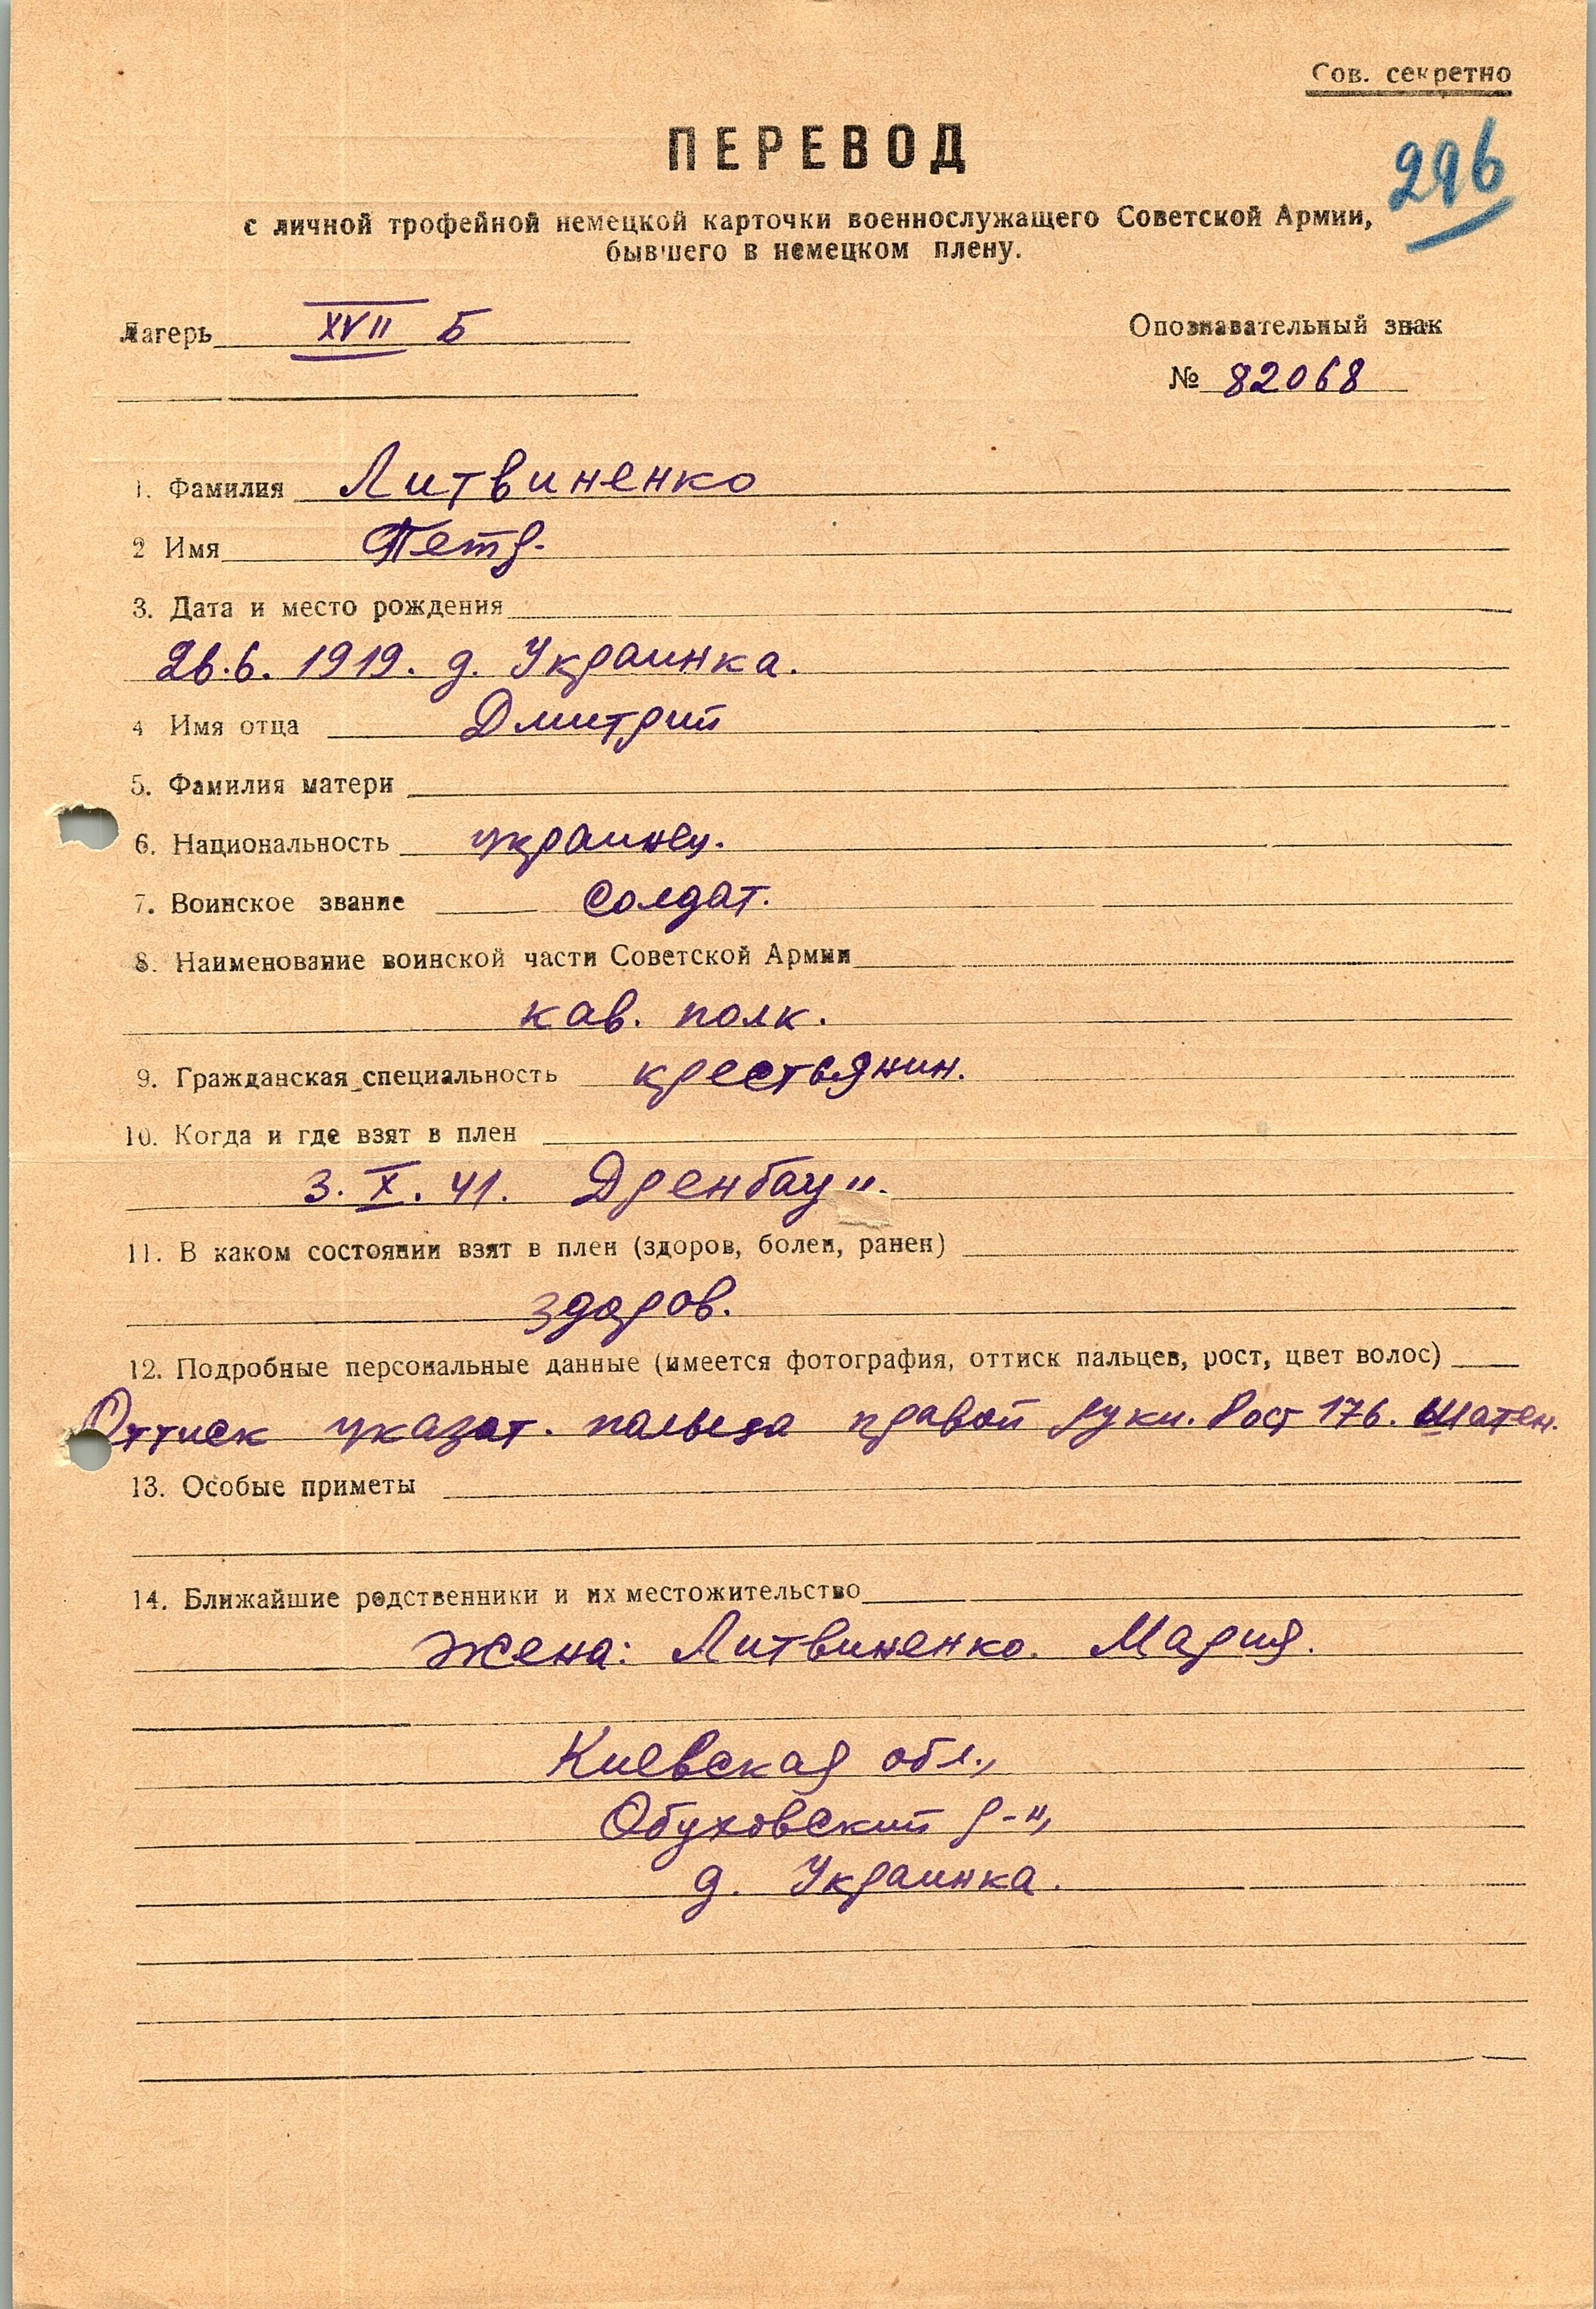 Сов. секретно
ПЕРЕВОД
296
с личной трофейной немецкой карточки военнослужащего Советской Армии,
бывшего в немецком плену.
Лагерь XVII Б
Опознавательный знак
№ 82068
1. Фамилия Литвиненко
2 Имя Петр.
3. Дата и место рождения
26.6. 1919. д. Украинка.
4 Имя отца Дмитрий
5. Фамилия матери
6. Национальность украинец.
7. Воинское звание солдат.
8. Наименование воинской части Советской Армии
кав. полк.
9. Гражданская специальность крестьянин.
10. Когда и где взят в плен
3. X. 41.
11. В каком состоянии взят в плен (здоров, болен, ранен)
здоров.
12. Подробные персональные данные (имеется фотография, оттиск пальцев, рост, цвет волос)
Оттиск указат. пальца правой руки. Рост 176. Шатен.
13. Особые приметы
14. Ближайшие родственники и их местожительство
жена: Литвиненко. Мария.
Киевская обл.,
Обуховский р-н,
д. Украинка.